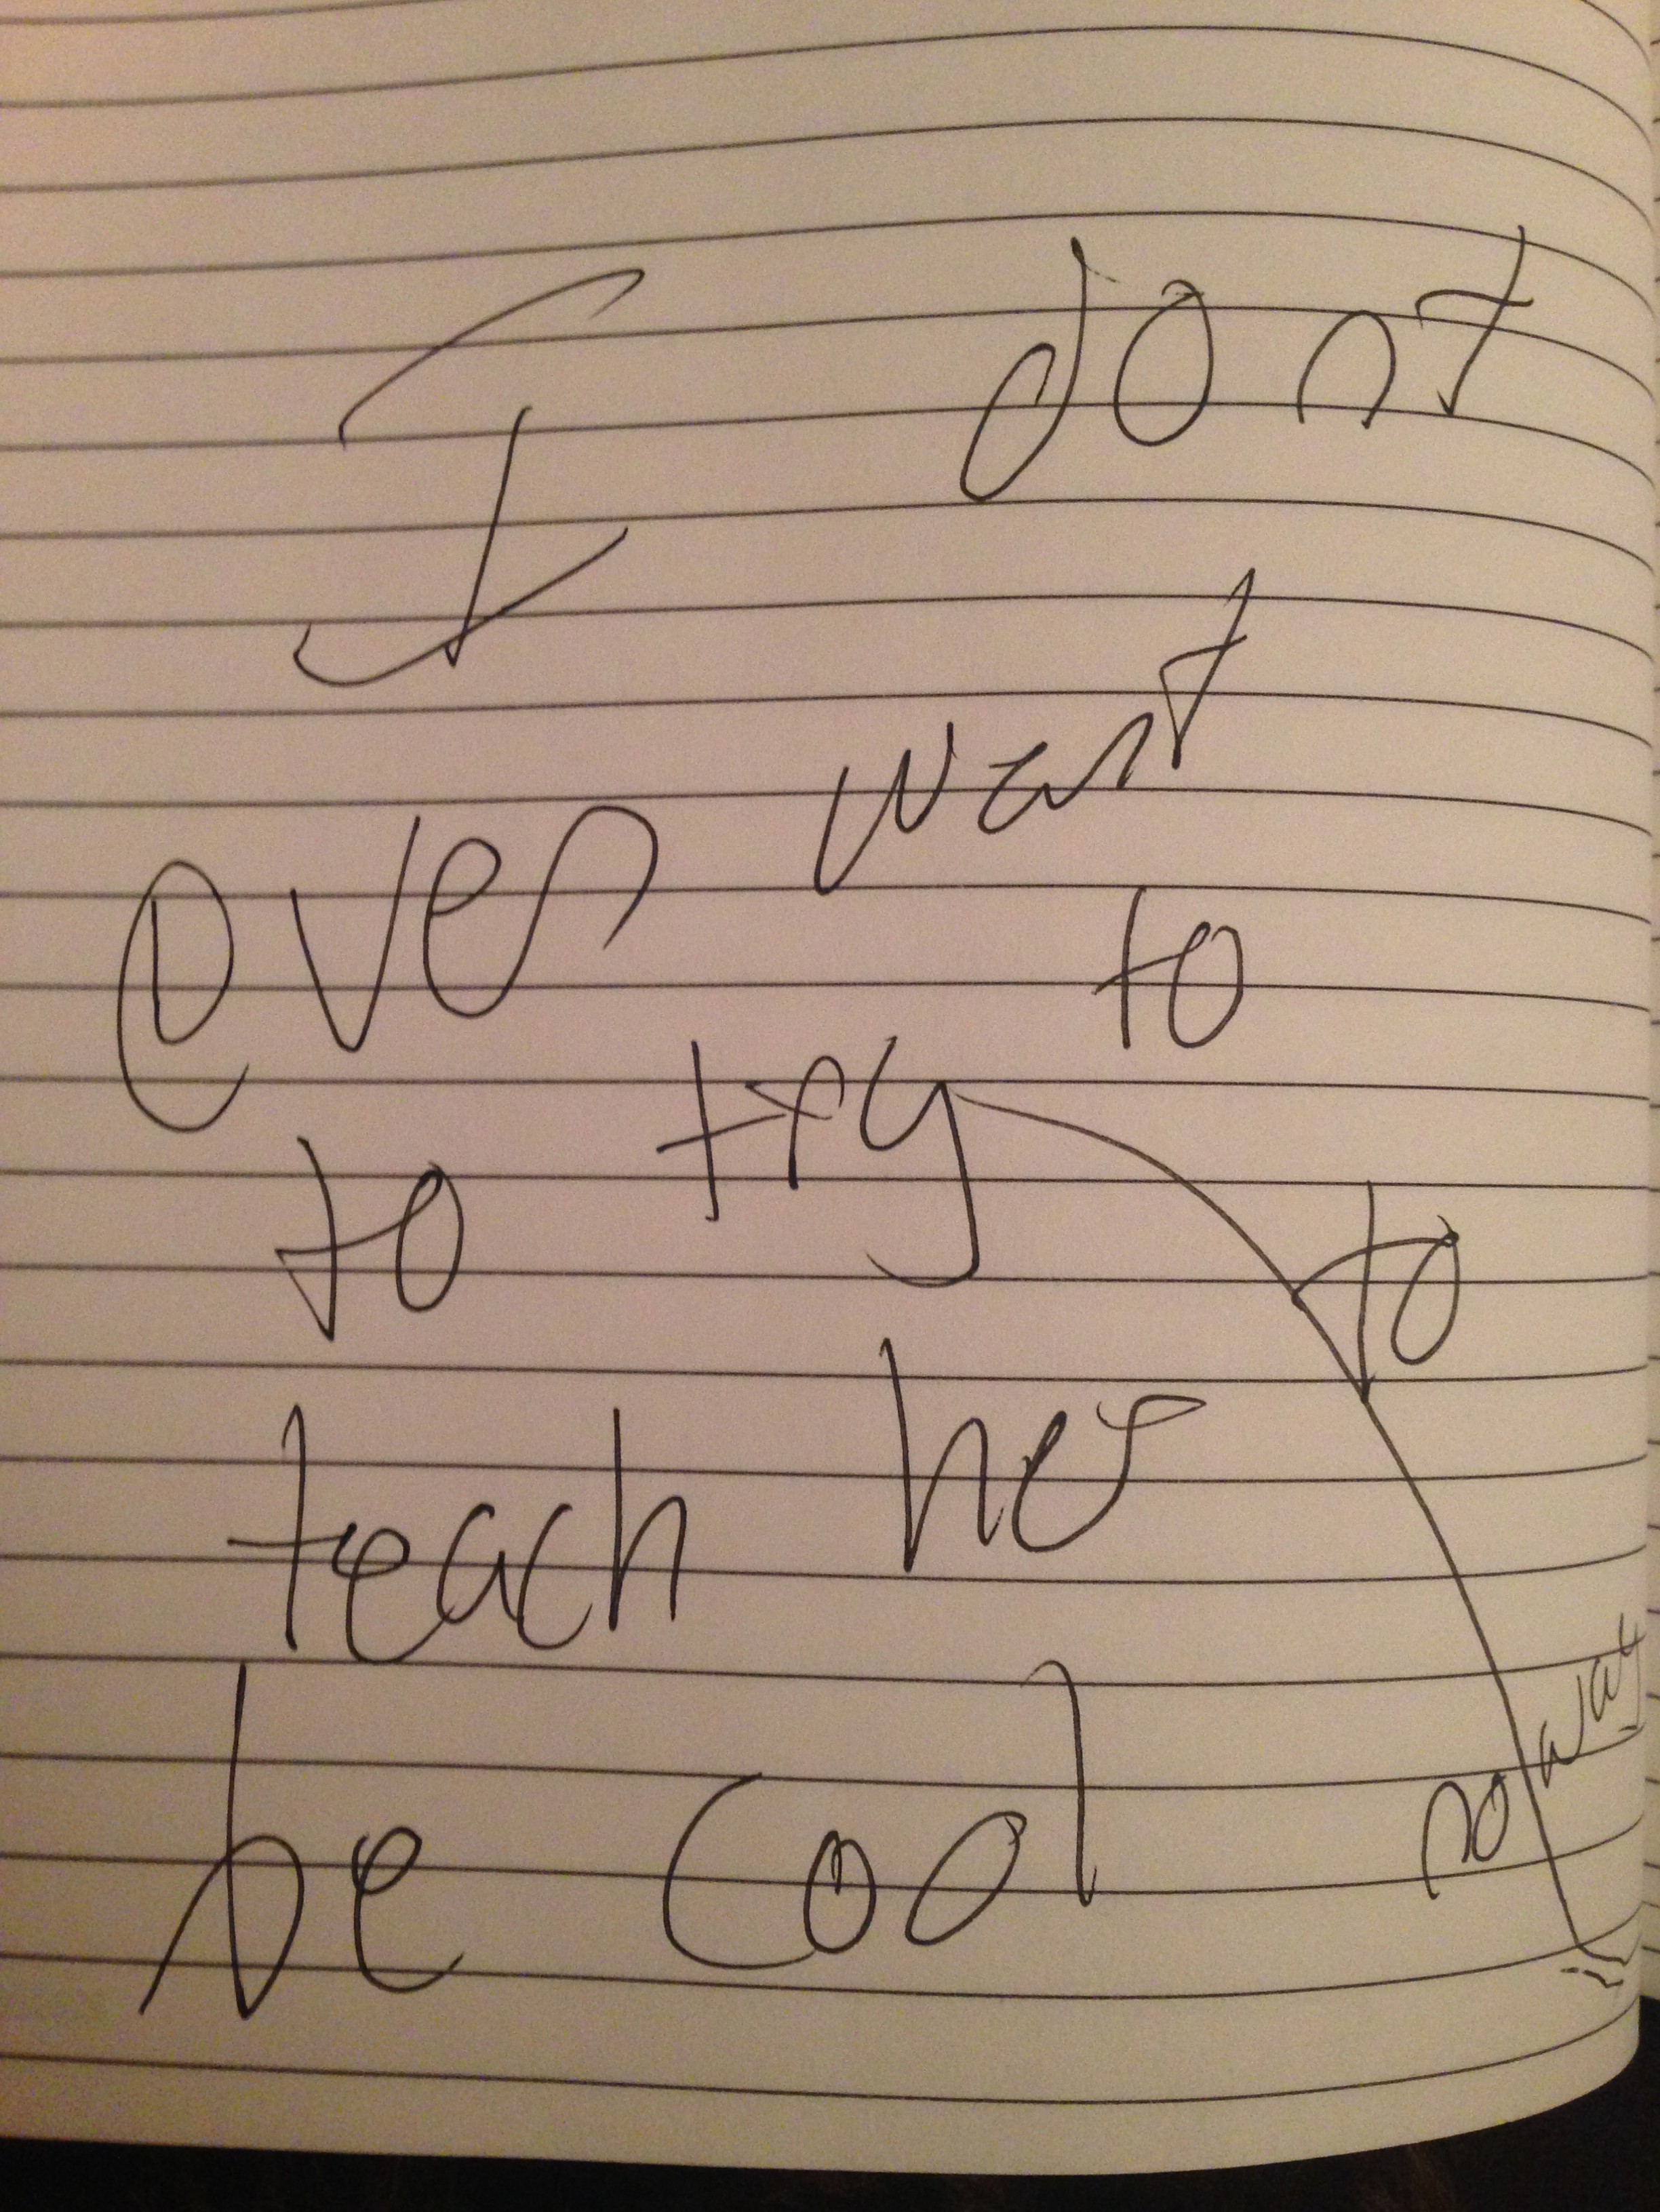 I dont
even want
to
to try
to
teach her
be cool
no way